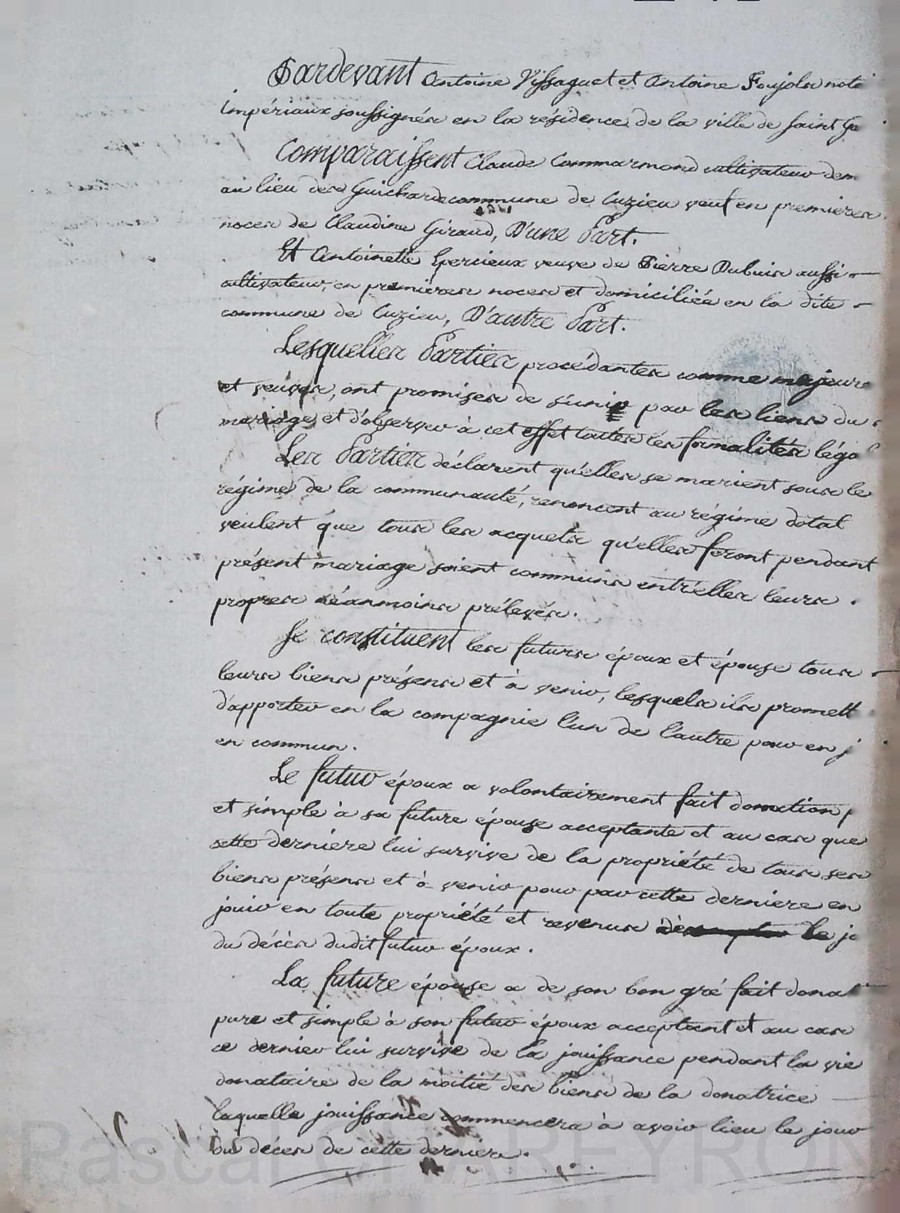 Pardevant Antoine Vissaguet et Antoine Foujols not
impériaux soussignés en la résidence de la ville de Saint Ga
Comparaissent Claude Commarmond cultivateur dem
au lieu des Guichards commune de Cuzieu veuf en premieres
noces de Claudine Giraud, D'une Part.
Et Antoinette Epercieux veuve de Pierre Dubuis aussi
cultivateur, en premieres noces et domiciliée en la dite
commune de Cuzieu, D'autre Part.
Lesquelles Parties procédantes comme majeurs
et veuves, ont promises de s'unir par les liens du
mariage, et d'observer à cet effet toutes les formalités léga
Les Parties déclarent qu'elles se marient sous le
régime de la communauté, renoncent au régime dotal
veulent que tous les acquets qu'elles feront pendant
présent mariage soient communs entr'elles leurs
propres néanmoins prélevés.
Se constituent les futurs époux et épouse tous
leurs biens présens et à venir, lesquels ils promett
d'apporter en la compagnie l'un de l'autre pour en j
en commun.
Le futur époux a volontairement fait donation p
et simple à sa future épouse acceptante et au cas que
cette derniere lui survive de la propriété de tous ses
biens présens et à venir pour par cette derniere en
jouir en toute propriété et revenus dès le jo
du décès dudit futur époux.
La future épouse a de son bon gré fait dona
pure et simple à son futur époux acceptant et au cas
ce dernier lui survive de la jouissance pendant la vie
donataire de la moitié des biens de la donatrice
laquelle jouissance commencera à avoir lieu le jour
du décès de cette derniere.
Pascal CHAREYRON